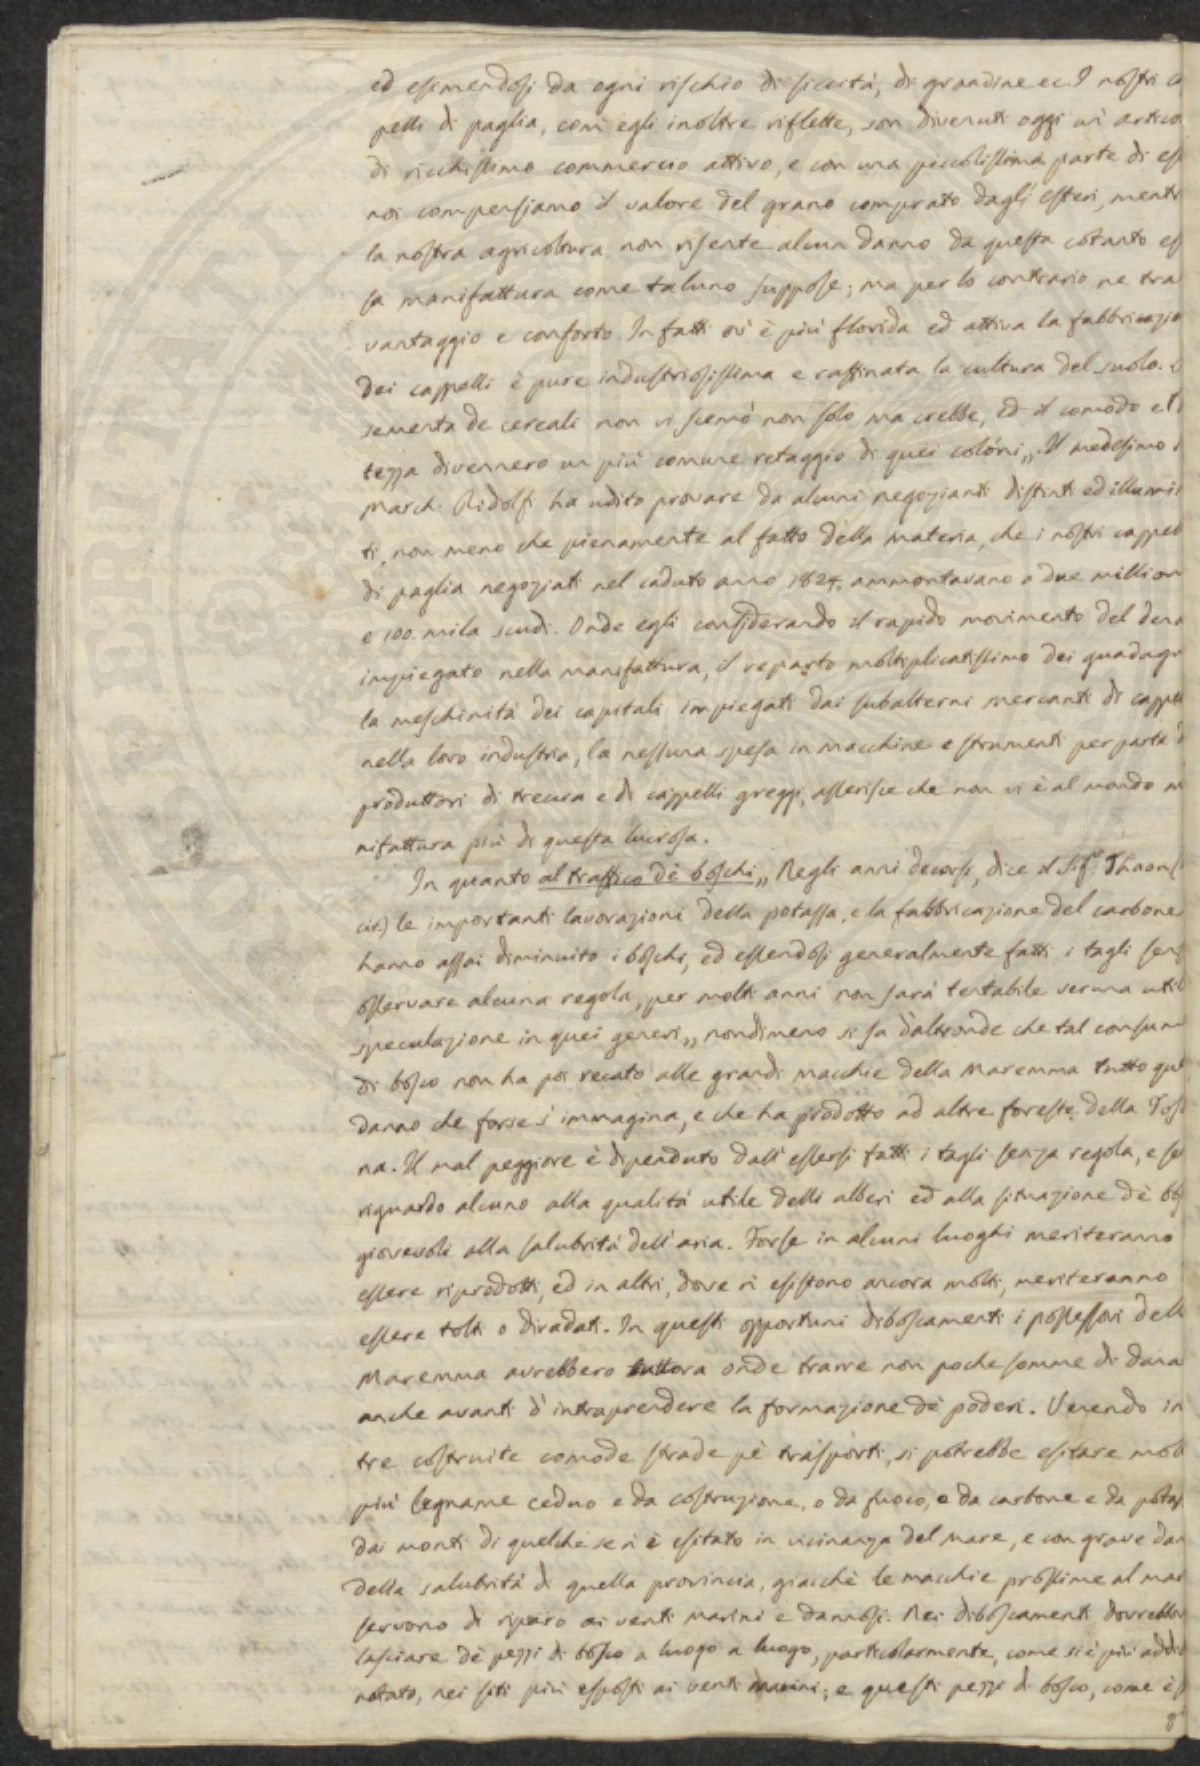 ed esimendosi da ogni rischio di siccità, di grandine ec. I nostri ca
pelli di paglia, com' egli inoltre riflette, son divenuti oggi un' artico
di ricchissimo commercio attivo, e con una piccolissima parte di es
noi compensiamo il valore del grano comprato dagli esteri, mentr
la nostra agricoltura non risente alcun danno da questa cotanto es
sa manifattura come taluno suppose; ma per lo contrario ne tra
vantaggio e conforto. In fatti ov' è più florida ed attiva la fabbricazio
dei cappelli è pure industriosissima e raffinata la cultura del suolo.
sementa de cereali non vi scemò non solo ma crebbe, ed il comodo e l'
tezza divennero un più comune retaggio di quei colóni,, Il medesimo
March: Ridolfi ha udito provare da alcuni negozianti distinti ed illumin
ti, non meno che pienamente al fatto della materia, che i nostri cappel
di paglia negoziati nel caduto anno 1824, ammontavano a due million
e 100. mila scudi. Onde egli considerando il rapido movimento del dena
impiegato nella manifattura, il reparto moltiplicatissimo dei guadagn
la meschinità dei capitali impiegati dai subalterni mercanti di cappel
nella loro industria, la nessuna spesa in macchine e strumenti per parte d
produttori di treccia e di cappelli greggi, asserisce che non vi è al mondo m
nifattura più di questa lucrosa.
In quanto al traffico dè boschi,, Negli anni decorsi, dice il Sig.r Thaon
cit) le importanti lavorazioni della potassa, e la fabbricazione del carbone
hanno assai diminuito i boschi, ed essendosi generalmente fatti i tagli senz
osservare alcuna regola, per molti anni non sarà tentabile veruna util
speculazione in quei generi,, nondimeno si sa d'altronde che tal consum
di bosco non ha poi recato alle grandi macchie della Maremma tutto que
danno che forse s' immagina, e che ha prodotto ad altre foreste della Tos
na. Il mal peggiore è dipenduto dall' essersi fatti i tagli senza regola, e se
riguardo alcuno alla qualità utile delli alberi ed alla situazione dè bos
giovevoli alla salubrità dell' aria. Forse in alcuni luoghi meriteranno
essere riprodotti, ed in altri, dove vi esistono ancora molti, meriteranno
essere tolti o diradati. In questi opportuni diboscamenti i possessori dell
Maremma avrebbero tuttora onde trarre non poche somme di dana
anche avanti d' intraprendere la formazione dè poderi. Venendo in
tre costruite comode strade pè trasporti, si potrebbe esitare molt
più legname ceduo e da costruzione, o da fuoco, o da carbone e da potas
dai monti di quelche se n' è esitato in vicinanza del mare, e con grave dan
della salubrità di quella provincia, giacchè le macchie prossime al mar
servono di riparo ai venti marini e dannosi. Nei diboscamenti dovrebber
lasciare dè pezzi di bosco a luogo a luogo, particolarmente, come si è più addi
notato, nei siti più esposti ai venti marini; e questi pezzi di bosco, come è s